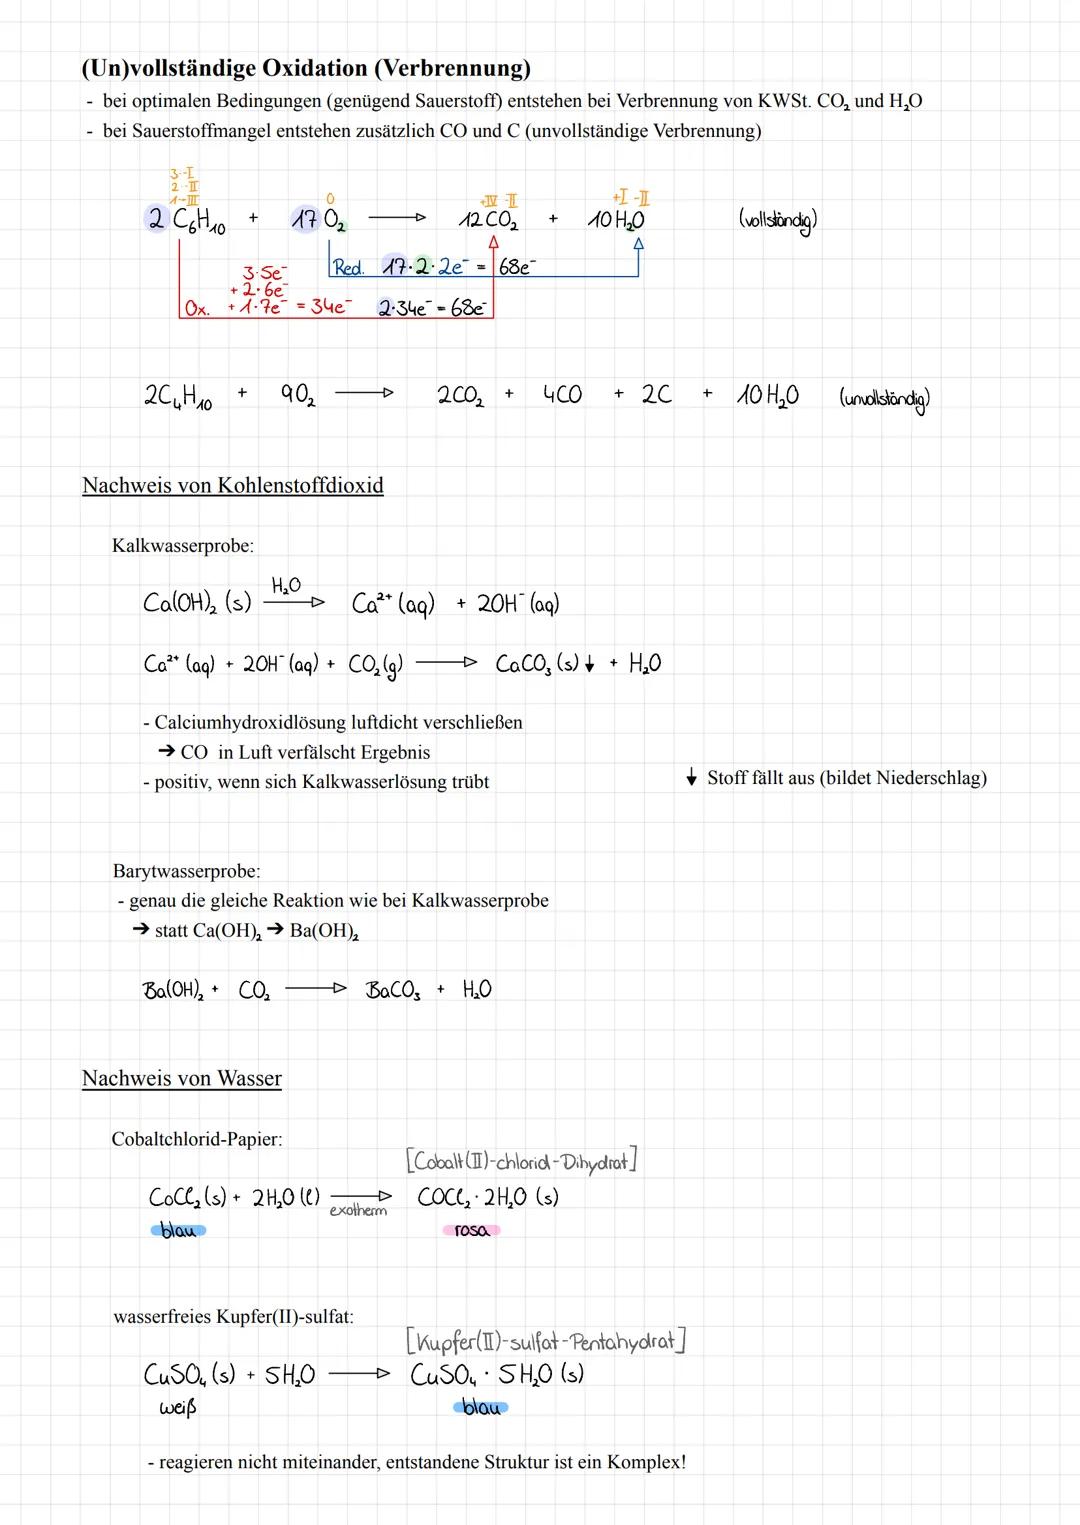 (Un)vollständige Oxidation (Verbrennung)
- bei optimalen Bedingungen (genügend Sauerstoff) entstehen bei Verbrennung von KWSt. CO₂ und H₂O
- bei Sauerstoffmangel entstehen zusätzlich CO und C (unvollständige Verbrennung)
3·-I
2·-II
1·-III
0
+IV -II
+I -II
2 C₆H₁₀ + 17 O₂ → 12 CO₂ + 10 H₂O (vollständig)
Red. 17·2·2e⁻ = 68e⁻
3·5e⁻
+ 2·6e⁻
Ox. + 1·7e⁻ = 34e⁻ 2·34e⁻ = 68e⁻
2C₄H₁₀ + 9O₂ → 2CO₂ + 4CO + 2C + 10H₂O (unvollständig)
Nachweis von Kohlenstoffdioxid
Kalkwasserprobe:
Ca(OH)₂ (s) H₂O → Ca²⁺ (aq) + 2OH⁻ (aq)
Ca²⁺ (aq) + 2OH⁻ (aq) + CO₂ (g) → CaCO₃ (s) ↓ + H₂O
- Calciumhydroxidlösung luftdicht verschließen
→ CO in Luft verfälscht Ergebnis
- positiv, wenn sich Kalkwasserlösung trübt
↓ Stoff fällt aus (bildet Niederschlag)
Barytwasserprobe:
- genau die gleiche Reaktion wie bei Kalkwasserprobe
→ statt Ca(OH)₂ → Ba(OH)₂
Ba(OH)₂ + CO₂ → BaCO₃ + H₂O
Nachweis von Wasser
Cobaltchlorid-Papier:
[Cobalt(II)-chlorid-Dihydrat]
CoCl₂ (s) + 2H₂O (l) → COCl₂ · 2H₂O (s)
exotherm
blau rosa
wasserfreies Kupfer(II)-sulfat:
[Kupfer(II)-sulfat-Pentahydrat]
CuSO₄ (s) + 5H₂O → CuSO₄ · 5H₂O (s)
weiß blau
- reagieren nicht miteinander, entstandene Struktur ist ein Komplex!